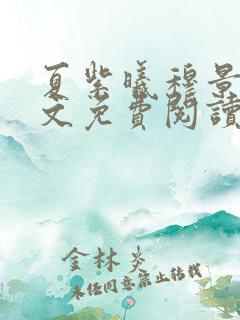 夏紫曦穆景
文免費閱讀
金林炎
未经同意禁止转载